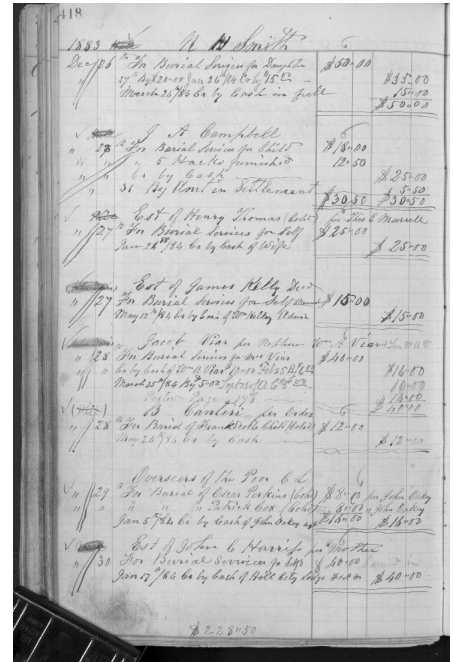 418
1883 N H Smith
Dec 26 To For Burial Services for Daughter $50.00
27th By $20.00 Jan 26th/84 Co by $15 $35.00
March 26th/84 Co by Cash in full 15.00
$50.00
J A Campbell
" 28 To For Burial Services for Child $18.00
" " " 5 Hacks furnished 12.50
" " Co by Cash $25.00
" 31 By in Settlement 5.50
$30.50 $30.50
Est of Henry Thomas (Cold) per Thos C Murrell
" 27 To For Burial Services for Self $25.00
Jan 26th/84 Co by Cash of Wife $25.00
Est of James Kelly Decd
" 27 For Burial Services for Self $15.00
May 12th/84 Co by Cash of Wm Kelley Admr $15.00
Jacob Vias for Mother Wm A Vias
" 28 For Burial Services for Mrs Vias $40.00
" " Co by Cash of Wm A 10.00 Feb 25 By 6.00 $16.00
March 25th/84 By 5.00 10.00
Page 14.00
$40.00
B Canteri per Order
" 28 To For Burial of Child (Cold) $12.00
May 26th/84 Co by Cash $12.00
Overseers of the Poor C L
" 29 To For Burial of Oscar Perkins (Cold) $8.00 per John Oakey
" " " " " Patrick Cox (Cold) 8.00 " John Oakey
Jan 5th/84 Co by Cash of John Oakey $16.00 $16.00
Est of John C Harris per Mother
" 30 For Burial Services for Self $40.00
Jan 17th/84 Co by Cash of Hill City Lodge $40.00
$228.50